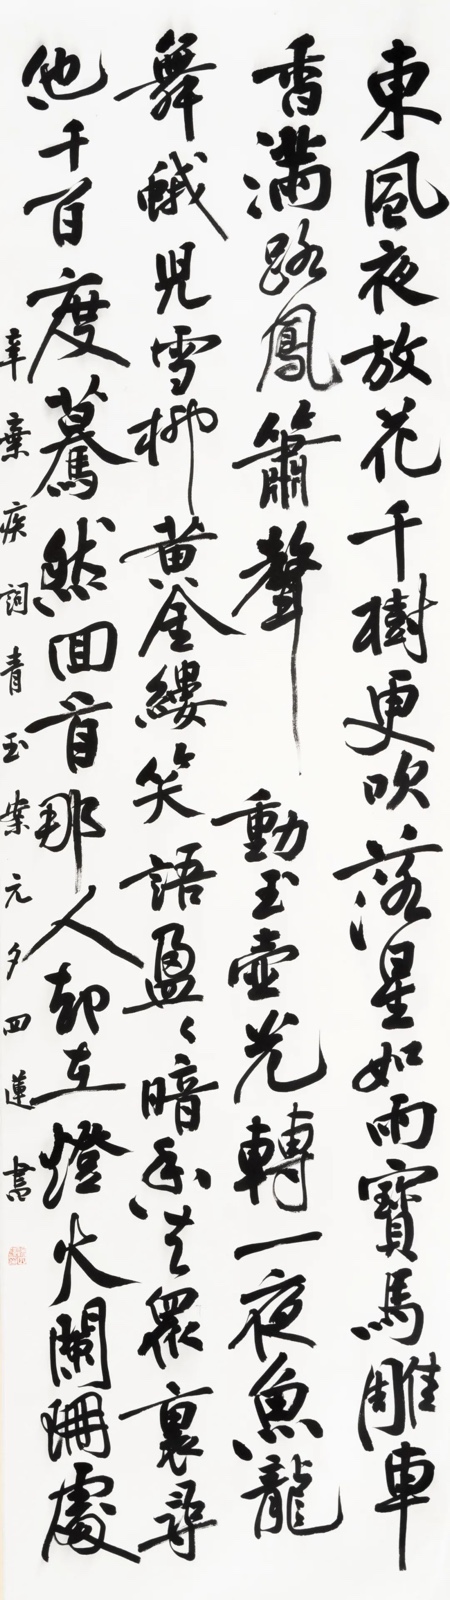 東風夜放花千樹更吹落星如雨寶馬雕車
香滿路鳳簫聲動玉壺光轉一夜魚龍
舞蛾兒雪柳黃金縷笑語盈々暗香去眾裏尋
他千百度驀然回首那人卻在燈火闌珊處
辛棄疾詞青玉案元夕四蓮書